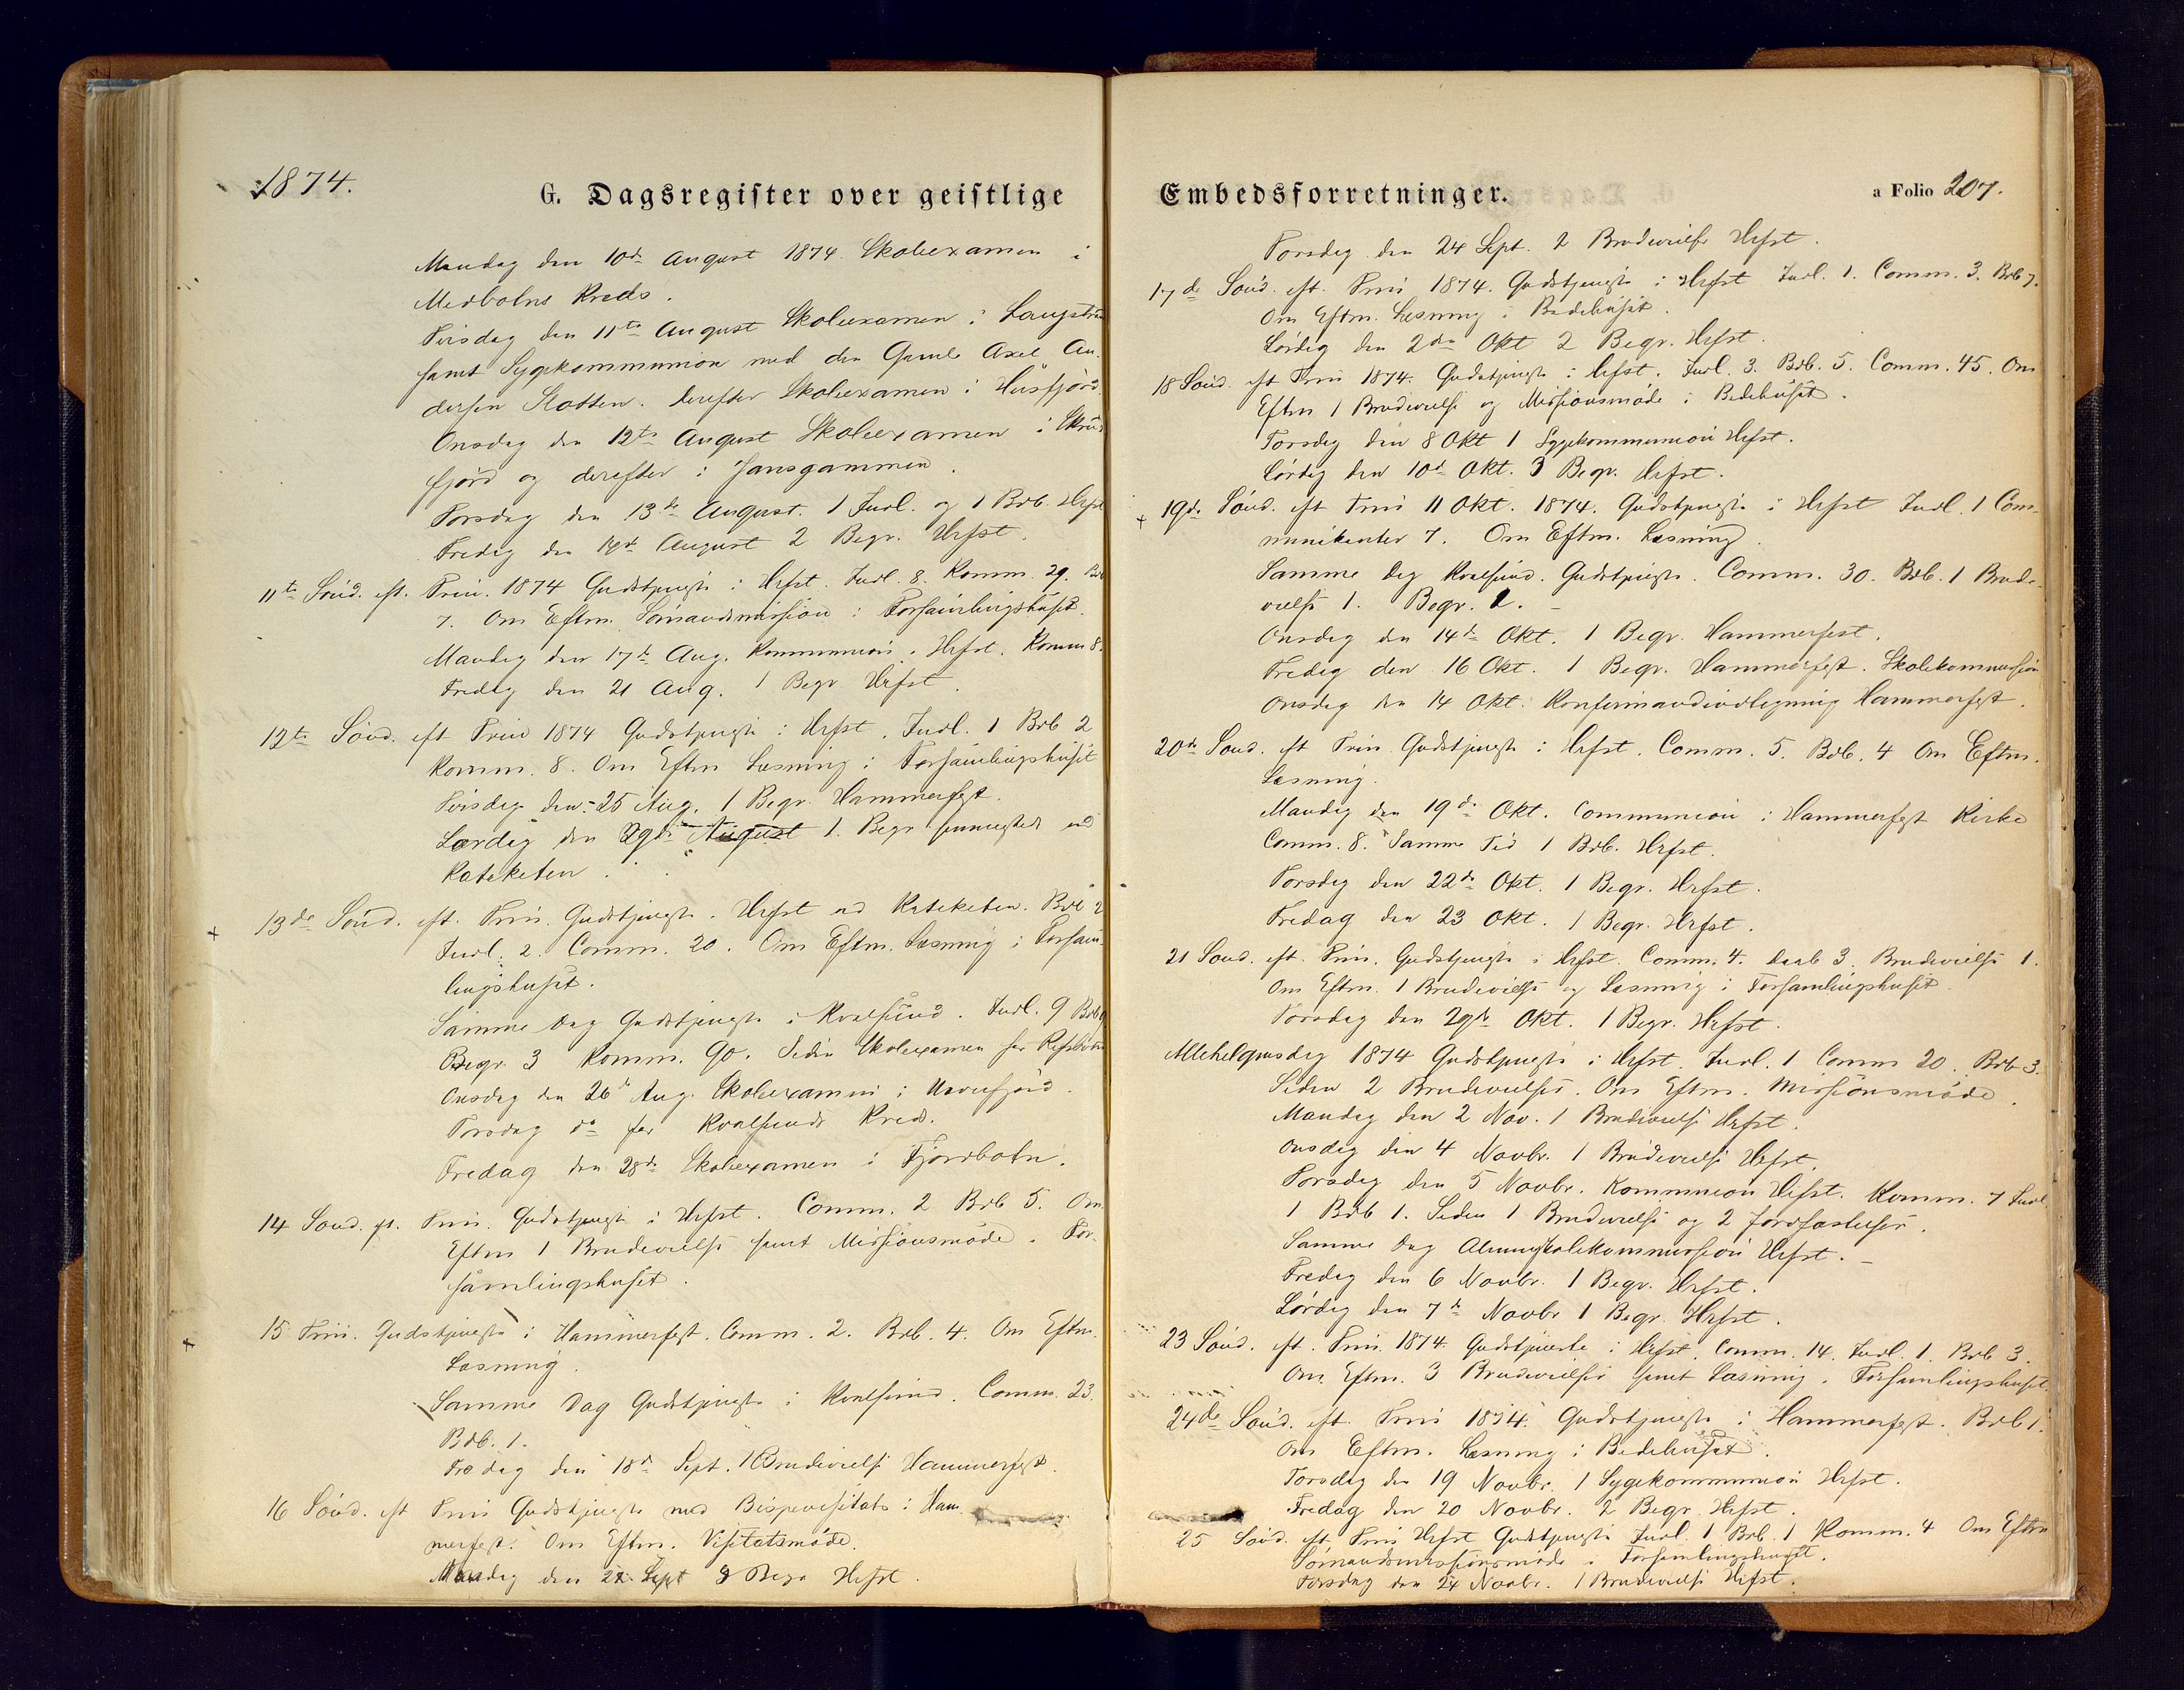 1874.
G. Dagsregister over geistlige
Mandag den 10de August 1874. Skoleexamen i
Medbotns Kreds.
Tirsdag den 11te August Skoleexamen i Langstrøm
samt Sygekommunion med den Gamle Axel An-
dersen Slotten. Derefter Skoleexamen i Husfjord.
Onsdag den 12te August Skoleexamen i
fjord og derefter i Jansgammen.
Torsdag den 13de August. 1 Indl. og 1 Brb. Hfst
Fredag den 14de August 2 Begr. Hfst.
11te Sönd. eft. Trin. 1874 Gudstjeneste i Hfst. Indl. 8. Komm. 29. Brb
7. Om Eftm. Sömandsmission i Forsamlingshuset.
Mandag den 17de Aug. Kommunion i Hfst. Komm 8.
Fredag den 21 Aug. 1 Begr. Hfst.
12te Sönd. eft Trin 1874 Gudstjeneste i Hfst. Indl. 1 Brb 2
Komm. 8. Om Eftm Læsning i Forsamlingshuset
Tirsdag den 25 Aug. 1 Begr. Hammerfest.
Lördag den 29de August 1. Begr. forrettet ved
Kateketen.
13de Sönd. eft. Trin. Gudstjeneste. Hfst ved Kateketen. Brb 2
Indl. 2. Comm. 20. Om Eftm. Læsning i Forsam-
lingshuset.
Samme Dag Gudstjeneste i Kvalsund. Indl. 9 Brb
Begr. 3 Komm. 90. Siden Skolexamen for
Onsdag den 26de Aug. Skolexamen i
Torsdag do for Kvalsunds Kred.
Fredag den 28de Skolexamen i Fjordbotn.
14 Sönd. eft. Trin. Gudstjeneste i Hfst. Comm. 2 Brb 5. Om
Eftm 1 Brudevielse samt Missionsmöde i For-
samlingshuset.
15 Trin. Gudstjeneste i Hammerfest. Comm. 2. Brb. 4. Om Eftm.
Læsning.
Samme Dag Gudstjeneste i Kvalsund. Comm. 23.
Brb. 1.
Fredag den 18de Sept. 1 Brudevielse Hammerfest.
16 Sönd. eft Trin Gudstjeneste med Bispevisitats i Ham
merfest. Om Eftm. Visitatsmöde.
Mandag den 21 Sept 3 Begr Hfst.
Embedsforretninger.
a Folio 207.
Torsdag den 24 Sept. 2 Brudevielse Hfst.
17de Sönd. eft. Trin 1874. Gudstjeneste i Hfst Indl. 1. Comm. 3. Brb 7.
Om Eftm. Læsning i Bedehuset.
Lördag den 2den Okt 2 Begr. Hfst.
18 Sönd. eft Trin 1874. Gudstjeneste i Hfst. Indl. 3. Brb. 5. Comm. 45. Om
Eftm 1 Brudevielse og Missionsmöde i Bedehuset.
Torsdag den 8 Okt 1 Sygekommunion Hfst.
Lördag den 10de Okt. 3 Begr. Hfst.
19de Sönd. eft Trin 11 Okt. 1874. Gudstjeneste i Hfst Indl. 1 Com-
munikanter 7. Om Eftm. Læsning.
Samme Dag Kvalsund. Gudstjeneste. Comm. 30. Brb. 1 Brude-
vielse 1. Begr. 2. –
Onsdag den 14de Okt. 1 Begr. Hammerfest.
Fredag den 16 Okt. 1 Begr. Hammerfest. Skolekommission
Onsdag den 14 Okt. Konfirmandindtegning Hammerfest.
20de Sönd. eft Trin Gudstjeneste i Hfst. Comm. 5. Brb. 4 Om Eftm.
Læsning.
Mandag den 19de Okt. Communion i Hammerfest Kirke
Comm. 8. Samme Tid 1 Brb. Hfst.
Torsdag den 22de Okt. 1 Begr. Hfst.
Fredag den 23 Okt. 1 Begr. Hfst.
21 Sönd. eft. Trin. Gudstjeneste i Hfst. Comm. 4. Daab 3. Brudevielse 1.
Om Eftm. 1 Brudevielse og Læsning i Forsamlingshuset
Torsdag den 29de Okt. 1 Begr. Hfst.
Allehelgensdag 1874 Gudstjeneste i Hfst. Indl. 1 Comm 20. Brb 3.
Siden 2 Brudevielser. Om Eftm. Missionsmöde.
Mandag den 2 Nov. 1 Brudevielse Hfst.
Onsdag den 4 Novbr. 1 Brudevielse Hfst.
Torsdag den 5 Novbr. Kommunion Hfst. Komm. 7 Indl.
1 Brb 1. Siden 1 Brudevielse og 2 Jordfæstelser.
Samme Dag Almueskolekommission Hfst. –
Fredag den 6 Novbr. 1 Begr. Hfst.
Lördag den 7de Novbr 1 Begr. Hfst.
23 Sönd. eft. Trin. 1874. Gudstjeneste i Hfst. Comm. 14. Indl. 1. Brb 3.
Om Eftm. 3 Brudevielser samt Læsning i Forsamlingshuset.
24de Sönd. eft. Trin 1874. Gudstjeneste i Hammerfest. Brb 1.
Om Eftm. Læsning i Bedehuset.
Torsdag den 19 Novbr. 1 Sygekommunion Hfst.
Fredag den 20 Novbr. 2 Begr. Hfst.
25 Sönd. eft. Trin Hfst Gudstjeneste Indl. 1 Brb. 1 Komm. 4 Om Eftm
Sömandsmissionsmöde i Forsamlingshuset.
Torsdag den 24 Novbr. 1 Brudevielse Hfst.